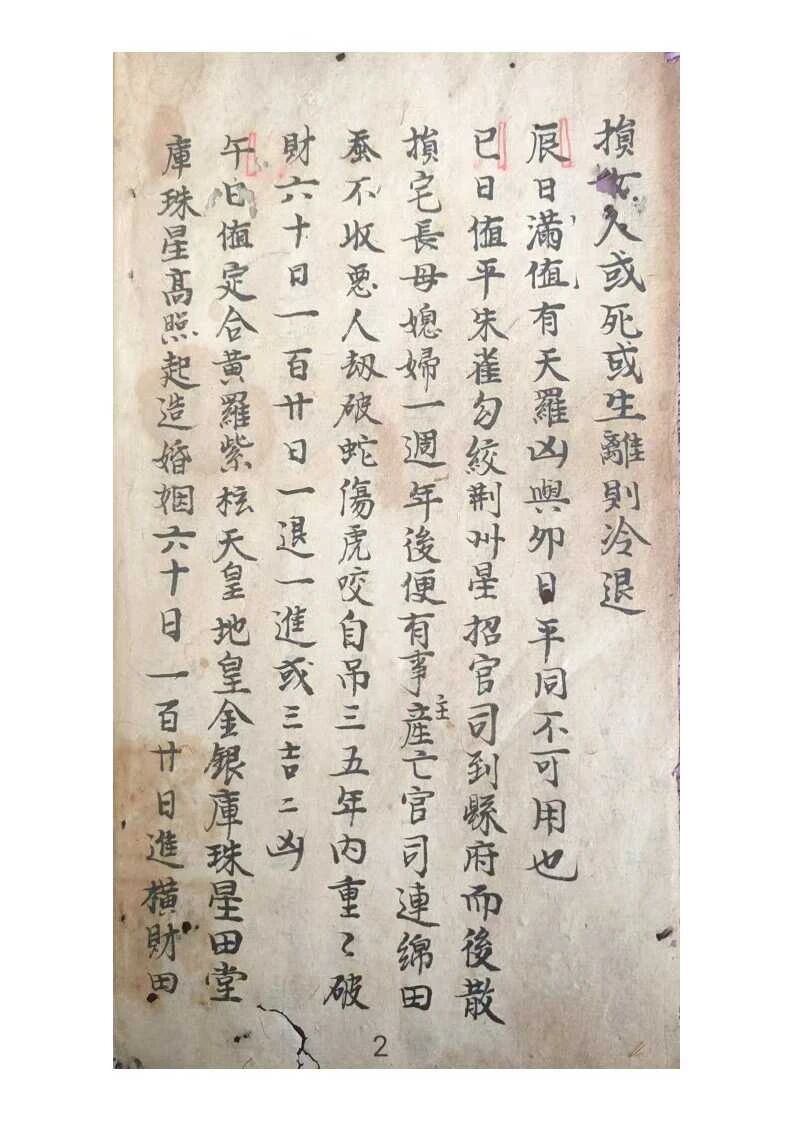 損女人或死或生離則冷退
辰日滿值有天羅凶與卯日平同不可用也
巳日值平朱雀勾絞荆州星招官司到縣府而後散
損宅長母媳婦一週年後便有事主產亡官司連綿田
蚕不收惡人刼破蛇傷虎咬自吊三五年內重〻破
財六十日一百廿日一退一進或三吉二凶
午日值定合黃羅紫枟天皇地皇金銀庫珠星田堂
庫珠星高照起造婚姻六十日一百廿日進橫財田
2